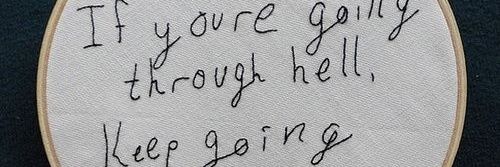 If youre going
through hell,
Keep going